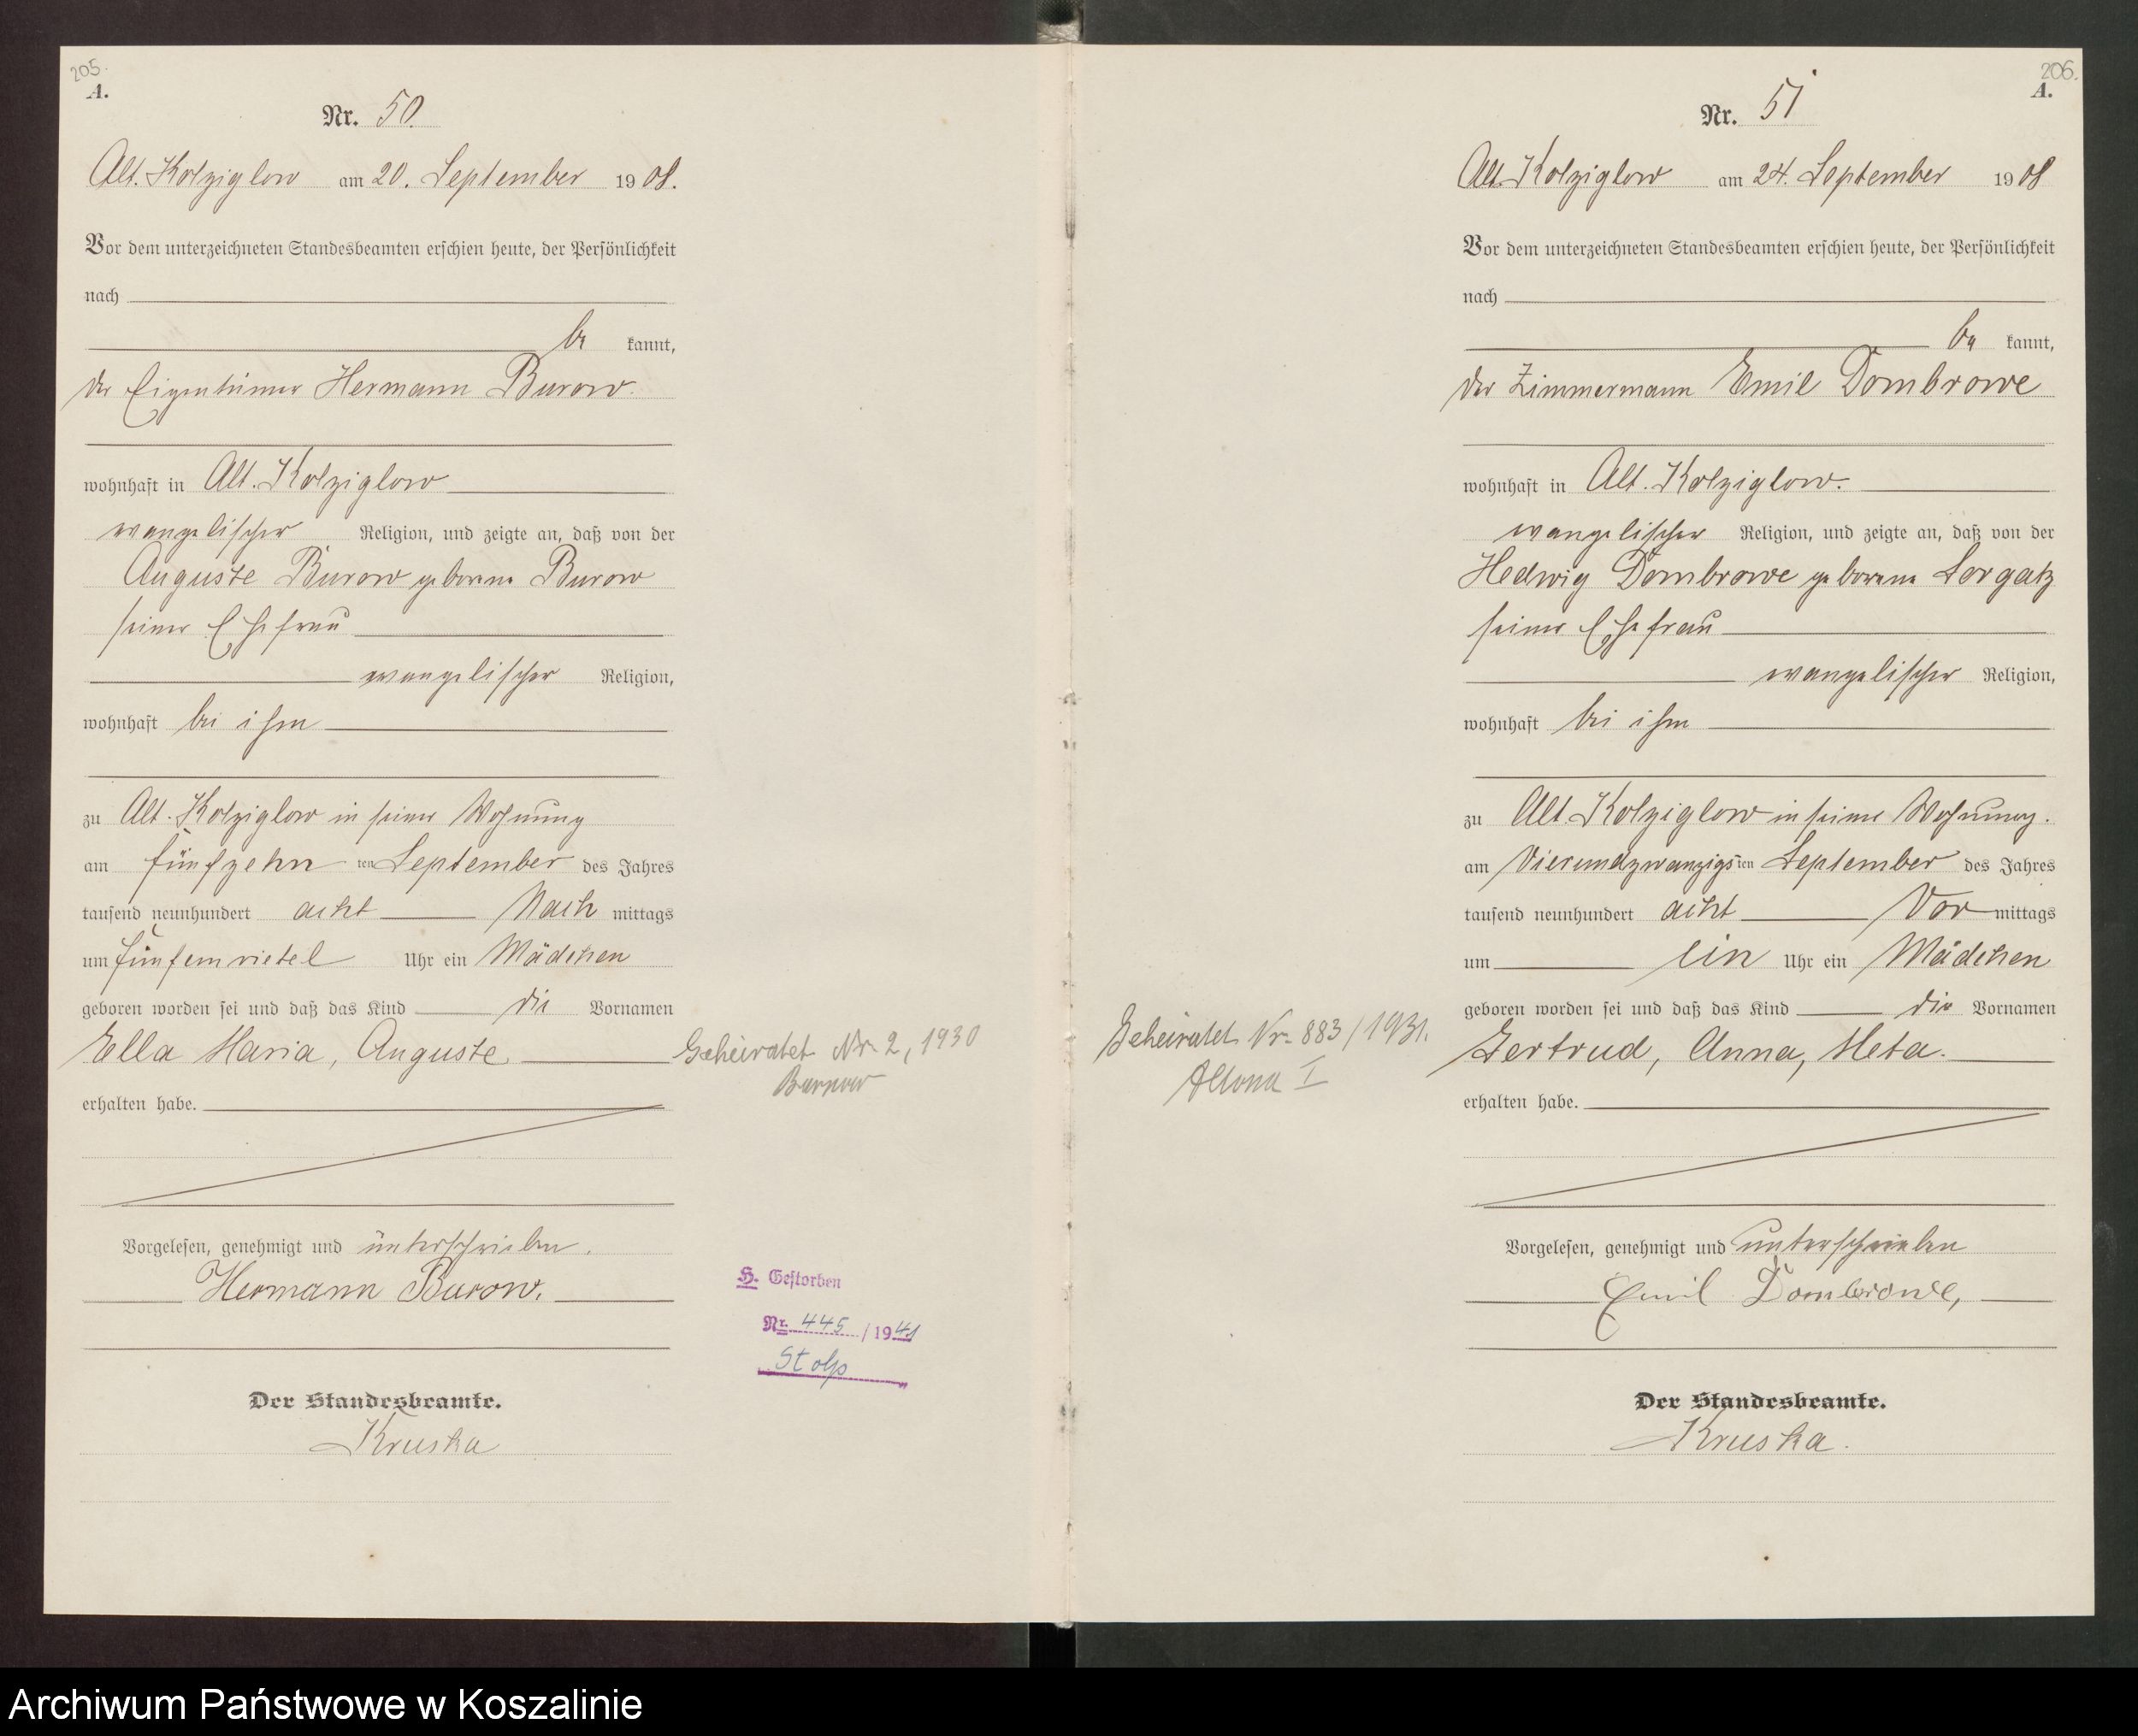 205.
A.
Nr. 50.
Alt. Kolziglow am 20. September 1908.
Vor dem unterzeichneten Standesbeamten erschien heute, der Persönlichkeit
nach
be kannt,
der Eigentümer Hermann Burow.
wohnhaft in Alt. Kolziglow
evangelischer Religion, und zeigte an, daß von der
Auguste Burow geborene Burow
seiner Ehefrau
evangelischer Religion,
wohnhaft bei ihm
zu Alt. Kolziglow in seiner Wohnung
am fünfzehn ten September des Jahres
tausend neunhundert acht Nach mittags
um fünfeinviertel Uhr ein Mädchen
geboren worden sei und daß das Kind die Vornamen
Ella Maria, Auguste
erhalten habe.
Vorgelesen, genehmigt und unterschrieben.
Hermann Burow.
Der Standesbeamte.
Kruska
Geheiratet Nr. 2, 1930
H. Gestorben
Nr. 445 / 1941
Stolp
206.
A.
Nr. 51
Alt. Kolziglow am 24. September 1908
Vor dem unterzeichneten Standesbeamten erschien heute, der Persönlichkeit
nach
be kannt,
der Zimmermann Emil Dombrowe
wohnhaft in Alt. Kolziglow.
evangelischer Religion, und zeigte an, daß von der
Hedwig Dombrowe geborene Lorgatz
seiner Ehefrau
evangelischer Religion,
wohnhaft bei ihm
zu Alt. Kolziglow in seiner Wohnung.
am Vierundzwanzigsten September des Jahres
tausend neunhundert acht Vor mittags
um ein Uhr ein Mädchen
geboren worden sei und daß das Kind die Vornamen
Gertrud, Anna, Meta.
erhalten habe.
Vorgelesen, genehmigt und unterschrieben
Emil Dombrowe,
Der Standesbeamte.
Kruska.
Geheiratet Nr. 883/1931.
Altona I
Archiwum Państwowe w Koszalinie